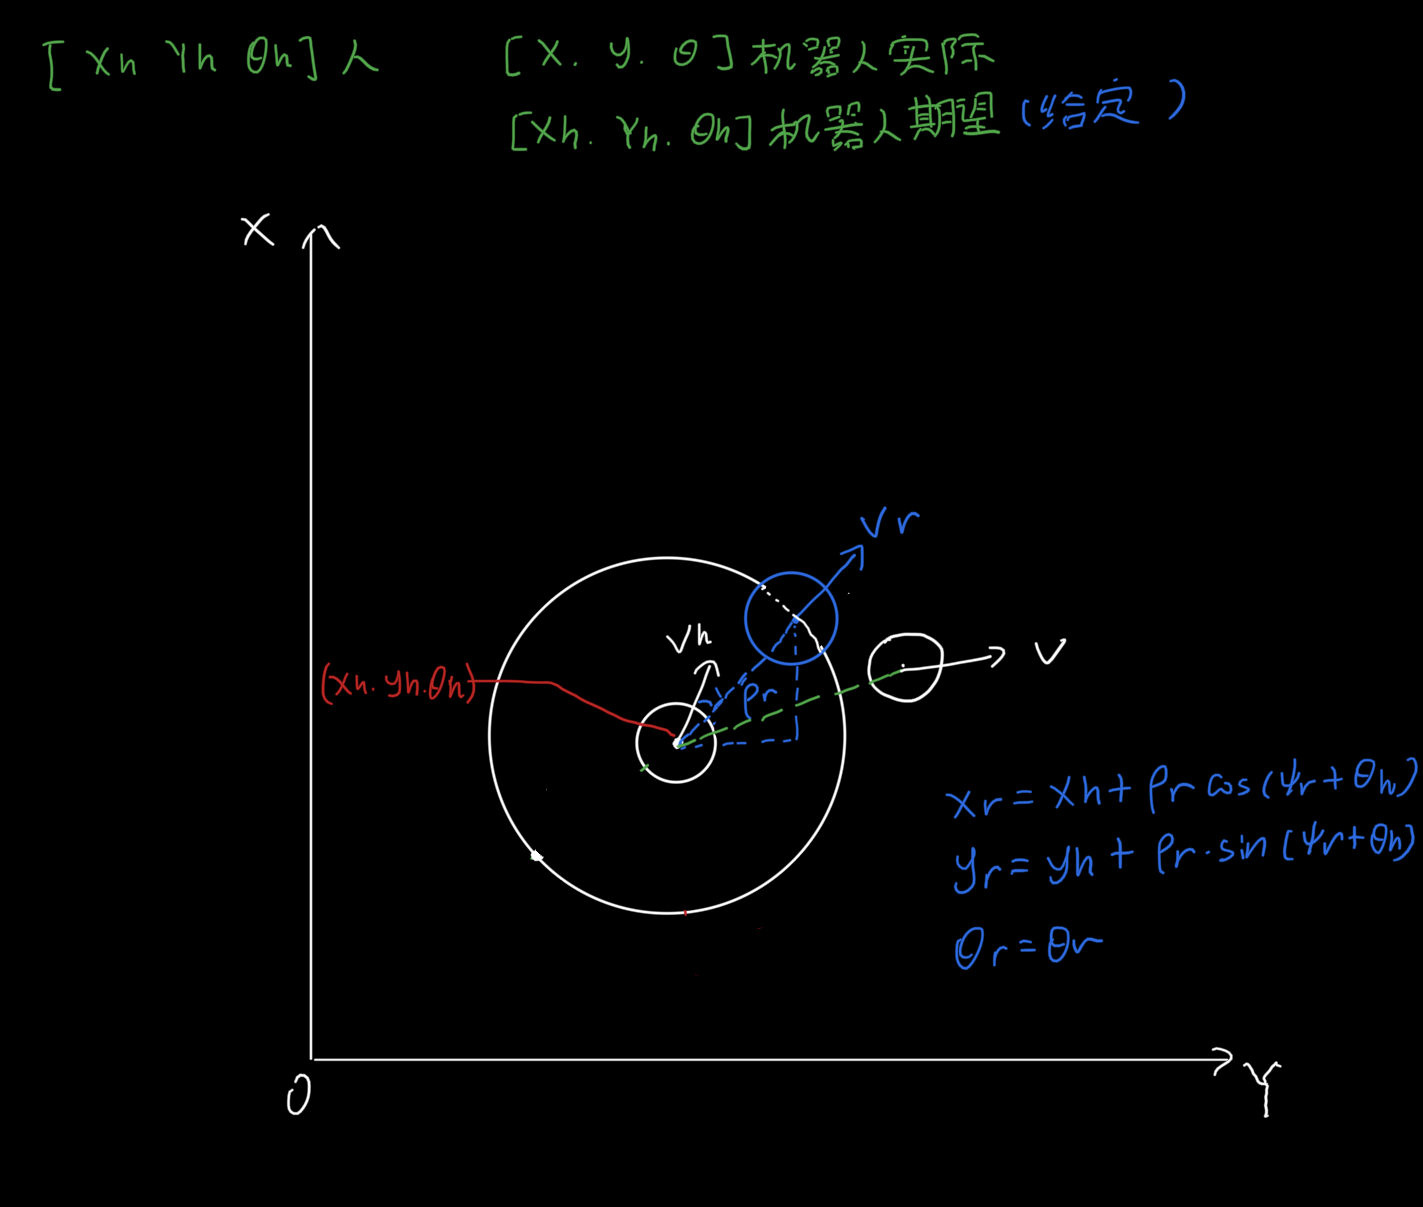 [Xh Yh θh]人 [X. y. θ]机器人实际
[Xh. Yh. θh]机器人期望(给定)
X
Vr
Vh
V
(Xh. yh. θh)
ρr
xr = xh + ρr cos(ψr + θh)
yr = yh + ρr·sin(ψr+θh)
θr = θr
O
Y